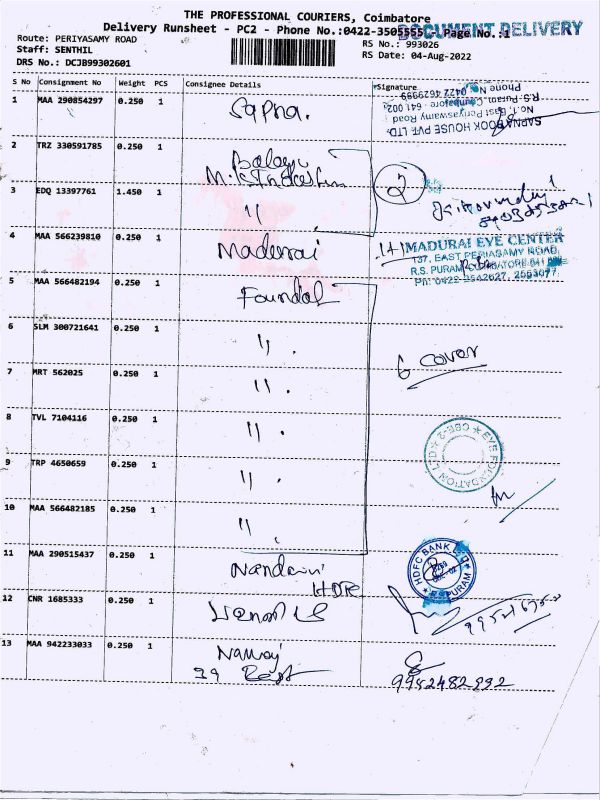 THE PROFESSIONAL COURIERS, Coimbatore
Delivery Runsheet - PC2 - Phone No.:0422-3505555 - Page No.:1
DOCUMENT DELIVERY
Route: PERIYASAMY ROAD
RS No.: 993026
Staff: SENTHIL
RS Date: 04-Aug-2022
DRS No.: DCJB99302601
S No Consignment No Weight PCS Consignee Details Signature
1 MAA 290854297 0.250 1 Sapna.
SAPNA BOOK HOUSE PVT LTD.
No.1, East Periyaswamy Road
R.S.Puram, Coimbatore - 641 002
Phone No. 0422 4629999
2 TRZ 330591785 0.250 1 Balaji
3 EDQ 13397761 1.450 1 "
2
4 MAA 566239810 0.250 1 Madurai
MADURAI EYE CENTER
137, EAST PERIASAMY ROAD,
R.S. PURAM, COIMBATORE-641
Ph: 0422-2542627, 2553077
5 MAA 566482194 0.250 1 Foundat
6 SLM 300721641 0.250 1 " .
7 MRT 562025 0.250 1 " .
6 cover
8 TVL 7104116 0.250 1 " .
EYE FOUNDATION LTD CBE-2
9 TRP 4650659 0.250 1 " .
10 MAA 566482185 0.250 1 " .
11 MAA 290515437 0.250 1 Nandini
HDFC
HDFC BANK
R S PURAM
12 CNR 1685333 0.250 1
13 MAA 942233033 0.250 1